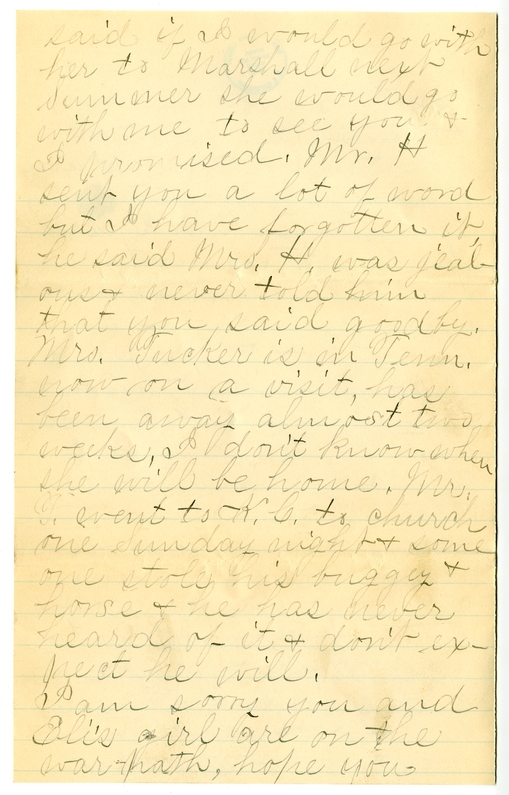 said if I would go with
her to Marshall next
summer she would go
with me to see you &
I promised. Mr. H
sent you a lot of word
but I have forgotten it,
he said Mrs. H. was jeal-
ous & never told him
that you said goodby.
Mrs. Tucker is in Tenn.
now on a visit, has
been away almost two
weeks, I don't know when
she will be home. Mr.
T. went to K.C. to church
one Sunday night & some
one stole his buggy &
horse & he has never
heard of it & don't ex-
pect he will.
I am sorry you and
Eli's girl are on the
war-path, hope you